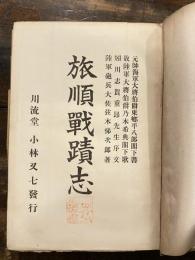 元帥海軍大將伯爵東郷平八郎閣下書
故陸軍大將伯爵乃木希典閣下歌
願川志賀重昂先生序文
陸軍砲兵大佐佐木悌次郎著
旅順戰蹟志
川流堂 小林又七發行